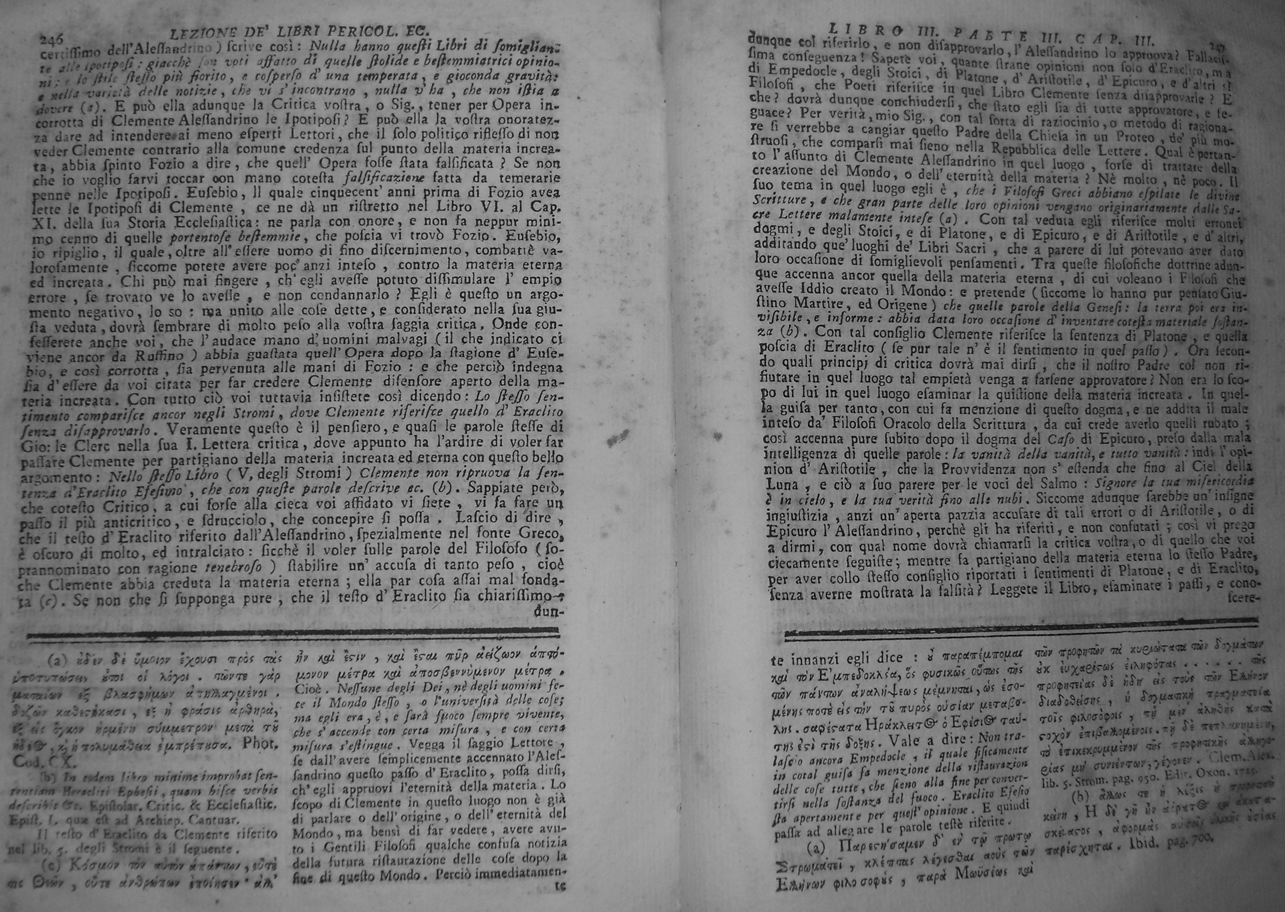 246
LEZIONE DE' LIBRI PERICOL. EC.
certissimo dell'Alessandrino) scrive così: Nulla hanno questi Libri di somiglian-
te alle ipotiposi: giacchè son voti affatto di quelle stolide e bestemmiatrici opinio-
ni: e lo stile stesso più fiorito, e cosperso d'una temperata, e gioconda gravità:
e nella varietà delle notizie, che vi s'incontrano, nulla v'ha, che non istia a
dovere (a). E può ella adunque la Critica vostra, o Sig., tener per Opera in-
corrotta di Clemente Alessandrino le Ipotiposi? E può ella la vostra onoratez-
za dare ad intendere ai meno esperti Lettori, che il solo politico riflesso di non
veder Clemente contrario alla comune credenza sul punto della materia increa-
ta, abbia spinto Fozio a dire, che quell' Opera fosse stata falsificata? Se non
che io voglio farvi toccar oon mano cotesta falsificazione fatta da temerarie
penne nelle Ipotiposi. Eusebio, Il quale cinquecent' anni prima di Fozio avea
lette le Ipotiposi di Clemente, ce ne dà un ristretto nel Libro VI. al Cap.
XI. della sua Storia Ecclesiastica: ne parla con onore, e non fa neppur mini-
mo cenno di quelle portentose bestemmie, che poscia vi trovò Fozio. Eusebio,
io ripiglio, il quale, oltre all'essere uomo di fino discernimento, combattè va-
lorosamente, siccome potete avere poc' anzi inteso, contro la materia eterna
ed increata. Chi può mai fingere, ch'egli avesse potuto dissimulare l' empio
errore, se trovato ve lo avesse, e non condannarlo? Egli è questo un argo-
mento negativo, lo so: ma unito alle cose dette, e considerato nella sua giu-
sta veduta, dovrà sembrare di molto peso alla vostra saggia critica. Onde con-
fesserete anche voi, che l'audace mano d'uomini malvagi (il che indicato ci
viene ancor da Ruffino) abbia guastata quell'Opera dopo la stagione d' Euse-
bio, e così corrotta, sia pervenuta alle mani di Fozio: e che perciò indegna
sia d'essere da voi citata per far credere Clemente difensore aperto della ma-
teria increata. Con tutto ciò voi tuttavia insistete così dicendo: Lo stesso sen-
timento comparisce ancor negli Stromi, dove Clemente riferisce quello d' Eraclito
senza disapprovarlo. Veramente questo è il pensiero, e quasi le parole stesse di
Gio: le Clerc nella sua I. Lettera critica, dove appunto ha l'ardire di voler far
passare Clemente per partigiano della materia increata ed eterna con questo bello
argomento: Nello stesso Libro (V. degli Stromi) Clemente non ripruova la sen-
tenza d'Eraclito Efesino, che con queste parole descrive ec. (b). Sappiate però,
che cotesto Critico, a cui forse alla cieca voi affidato vi siete, vi fa fare un
passo il più anticritico, e sdrucciolo, che concepire si possa. Lascio di dire,
che il testo d'Eraclito riferito dall'Alessandrino, spezialmente nel fonte Greco,
è oscuro di molto, ed intralciato: sicchè il voler sulle parole del Filosofo (so-
prannominato con ragione tenebroso) stabilire un' accusa di tanto peso, cioè
che Clemente abbia creduta la materia eterna; ella par cosa assai mal fonda-
ta (c). Se non che si supponga pure, che il testo d' Eraclito sia chiarissimo,
dun-
(a) ὐδὲν δὲ ὅμοιον ἔχουσι πρὸς τὰς
ὑποτυπώσεις οὗτοι οἱ λόγοι.
Phot.
Cod. CX.
(b) In eodem libro minime improbat sen-
tentiam Heracliti Ephesii, quam hisce verbis
describit &c. Epistolar. Critic. & Ecclesiastic.
Epist. I. quæ est ad Archiep. Cantuar.
Il testo d'Eraclito da Clemente riferito
nel lib. 5. degli Stromi è il seguente.
(c) Κόσμον τὸν αὐτὸν ἁπάντων, οὔτε
τις Θεῶν, οὔτε ἀνθρώπων ἐποίησεν ἀλλ'
ἦν καὶ ἔστιν, καὶ ἔσται πῦρ ἀείζωον ἁπτό-
μενον μέτρα καὶ ἀποσβεννύμενον μέτρα.
Cioè. Nessune degli Dei, nè degli uomini fe-
ce il Mondo stesso, o l'università delle cose;
ma egli era, è, e sarà fuoco sempre vivente,
che s'accende con certa misura, e con certa
misura s'estingue. Vegga il saggio Lettore,
se dall'avere semplicemente accennato l'Ales-
sandrino questo passo d'Eraclito, possa dirsi,
ch'egli appruovi l'eternità della materia. Lo
scopo di Clemente in questo luogo non è già
di parlare o dell'origine, o dell'eternità del
Mondo, ma bensì di far vedere, avere avu-
to i Gentili Filosofi qualche confusa notizia
della futura ristaurazione delle cose dopo la
fine di questo Mondo. Perciò immediatamen-
te
LIBRO III. PARTE III. CAP. III.
dunque col riferirlo, e non disapprovarlo, l'Alessandrino lo approva? Fallacis-
sima conseguenza! Sapete voi, quante strane opinioni non solo d'Eraclito, ma
di Empedocle, degli Stoici, di Platone, d'Aristotile, d'Epicuro, e d'altri sì
Filosofi, che Poeti riferisce in quel Libro Clemente senza disapprovarle? E
che? dovrà dunque conchiudersi, che stato egli sia di tutte approvatore, e se-
guace? Per verità, mio Sig., con tal sorta di raziocinio, o metodo di ragiona-
re si verrebbe a cangiar questo Padre della Chiesa in un Proteo, de' più mo-
struosi, che comparsi mai sieno nella Repubblica delle Lettere. Qual è pertan-
to l'assunto di Clemente Alessandrino in quel luogo, forse di trattare della
creazione del Mondo, o dell'eternità della materia? Nè molto, nè poco. Il
suo tema in quel luogo egli è, che i Filosofi Greci abbiano espilate le divine
Scritture, e che gran parte delle loro opinioni vengano originariamente dalle Sa-
cre Lettere malamente intese (a). Con tal veduta egli riferisce molti erronei
dogmi, e degli Stoici, e di Platone, e di Epicuro, e di Aristotile, e d'altri,
additando que' luoghi de' Libri Sacri, che a parere di lui potevano aver dato
loro occasione di somiglievoli pensamenti. Tra queste filosofiche dottrine adun-
que accenna ancor quella della materia eterna, di cui voleano i Filosofi che
avesse Iddio creato il Mondo: e pretende (siccome lo hanno pur pensato Giu-
stino Martire, ed Origene) che quelle parole della Genesi: la terra poi era in-
visibile, e informe: abbia data loro occasione d' inventare cotesta materiale sostan-
za (b). Con tal consiglio Clemente riferisce la sentenza di Platone, e quella
poscia di Eraclito (se pur tale n' è il sentimento in quel passo). Ora secon-
do quali principj di critica dovrà mai dirsi, che il nostro Padre col non ri-
fiutare in quel luogo tal empietà venga a farsene approvatore? Non era lo sco-
po di lui in quel luogo esaminar la quistione della materia increata. In quel-
la guisa per tanto, con cui fa menzione di questo dogma, e ne addita il male
inteso da' Filosofi Oracolo della Scrittura, da cui crede averlo quelli rubato;
così accenna pure subito dopo il dogma del Caso di Epicuro, preso dalla mala
intelligenza di quelle parole: la vanità della vanità, e tutto vanità: indi l'opi-
nion d' Aristotile, che la Provvidenza non s' estenda che fino al Ciel della
Luna, e ciò a suo parere per le voci del Salmo: Signore la tua misericordia
è in cielo, e la tua verità fino alle nubi. Siccome adunque sarebbe un'insigne
ingiustizia, anzi un'aperta pazzia accusare di tali errori o di Aristotile, o di
Epicuro l'Alessandrino, perchè gli ha riferiti, e non confutati; così vi prego
a dirmi, con qual nome dovrà chiamarsi la critica vostra, o di quello che voi
ciecamente seguiste; mentre fa partigiano della materia eterna lo stesso Padre,
per aver collo stesso consiglio riportati i sentimenti di Platone, e di Eraclito,
senza averne mostrata la falsità? Leggete il Libro, esaminate i passi, e cono-
scere-
te innanzi egli dice: ὐ παραπέμπομαι
καὶ τὸν Ἐμπεδοκλέα, ὃς φυσικῶς οὕτως τῆς
τῶν πάντων ἀναλήψεως μέμνηται, ὡς ἐσο-
μένης ποτὲ εἰς τὴν τοῦ πυρὸς οὐσίαν μεταβο-
λῆς. σαφέστατα Ἡράκλειτος ὁ Ἐφέσιος ταύ-
της ἐστὶ τῆς δόξης. Vale a dire: Non tra-
lascio ancora Empedocle, il quale fisicamente
in cotal guisa fa menzione della ristaurazion
delle cose tutte, che sieno alla fine per conver-
tirsi nella sostanza del fuoco. Eraclito Efesio
sta apertamente per quest' opinione. E quindi
passa ad allegare le parole testè riferite.
(a) Παρεστήσαμεν δ' ἐν τῷ πρώτῳ
Στρωματεῖ, κλέπτας λέγεσθαι τοὺς τῶν
Ἑλλήνων φιλοσόφους, παρὰ Μωϋσέως καὶ
τῶν προφητῶν τὰ κυριώτατα τῶν δογμάτων
οὐκ εὐχαρίστως εἰληφότας. . . . .
Clem. Alex.
lib. 5. Strom. pag. 650. Edit. Oxon.
(b)
Ibid. pag. 700.